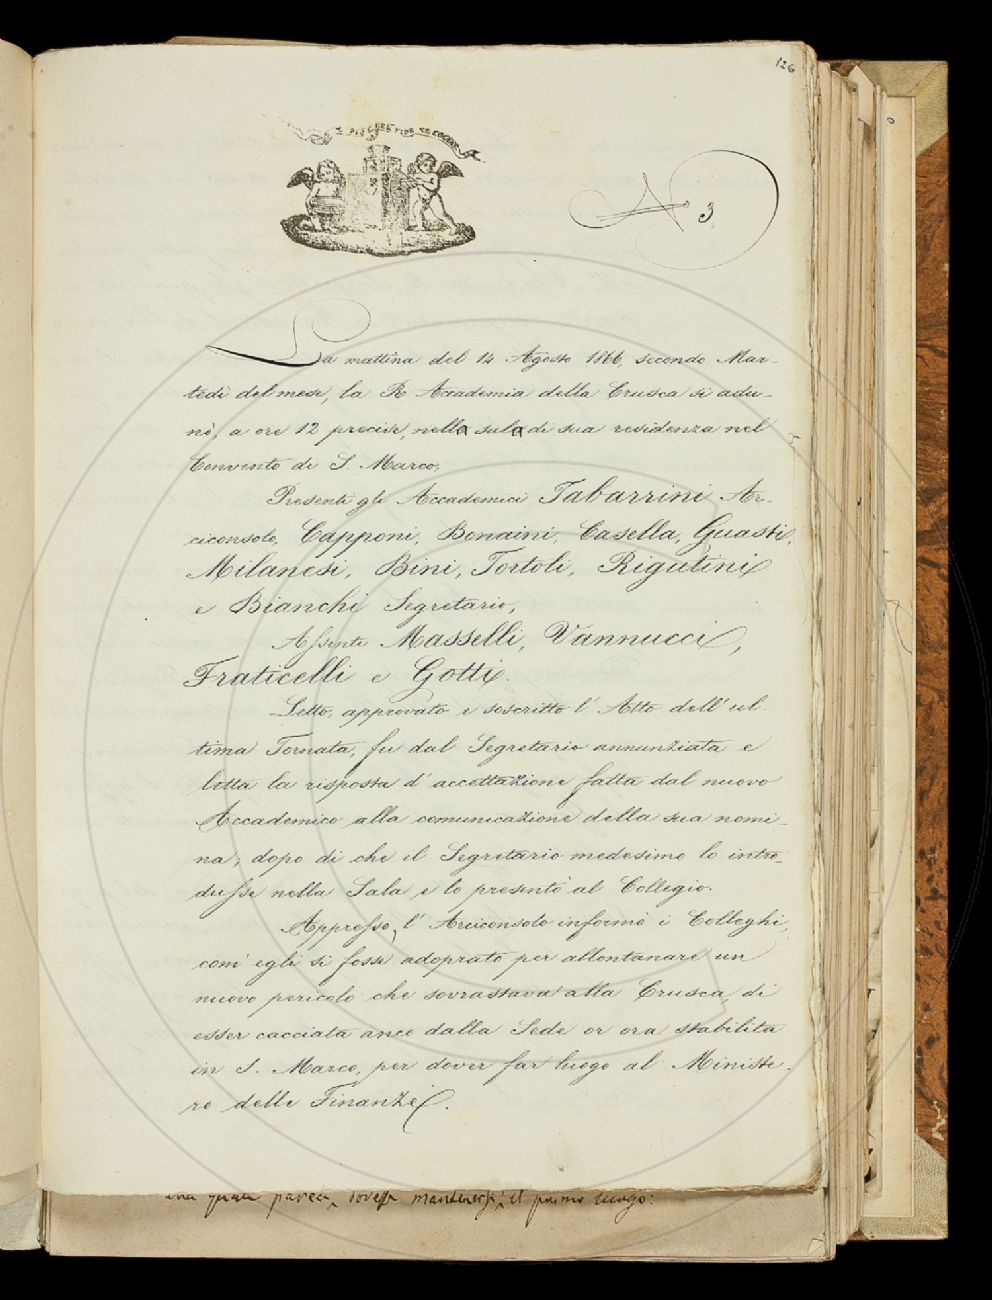 126
IL PIÙ BEL FIOR NE COGLIE
N 3.
La mattina del 14 Agosto 1866, secondo Mar-
tedì del mese, la R. Accademia della Crusca si adu-
nò, a ore 12 precise, nella sala di sua residenza nel
Convento di S. Marco.
Presenti gli Accademici Tabarrini Ar-
ciconsolo, Capponi, Bonaini, Casella, Guasti,
Milanesi, Bini, Tortoli, Rigutini
e Bianchi Segretario,
Assenti Masselli, Vannucci,
Fraticelli e Gotti.
Letto, approvato e soscritto l' Atto dell' ul-
tima Tornata, fu dal Segretario annunziata e
letta la risposta d' accettazione fatta dal nuovo
Accademico alla comunicazione della sua nomi-
na; dopo di che il Segretario medesimo lo intro-
dusse nella Sala e lo presentò al Collegio.
Appresso, l' Arciconsolo informò i Colleghi,
com' egli si fosse adoprato per allontanare un
nuovo pericolo che sovrastava alla Crusca, di
esser cacciata anco dalla Sede or ora stabilita
in S. Marco, per dover far luogo al Ministe-
ro delle Finanze.
parea, dovesse mantenersi il primo luogo: